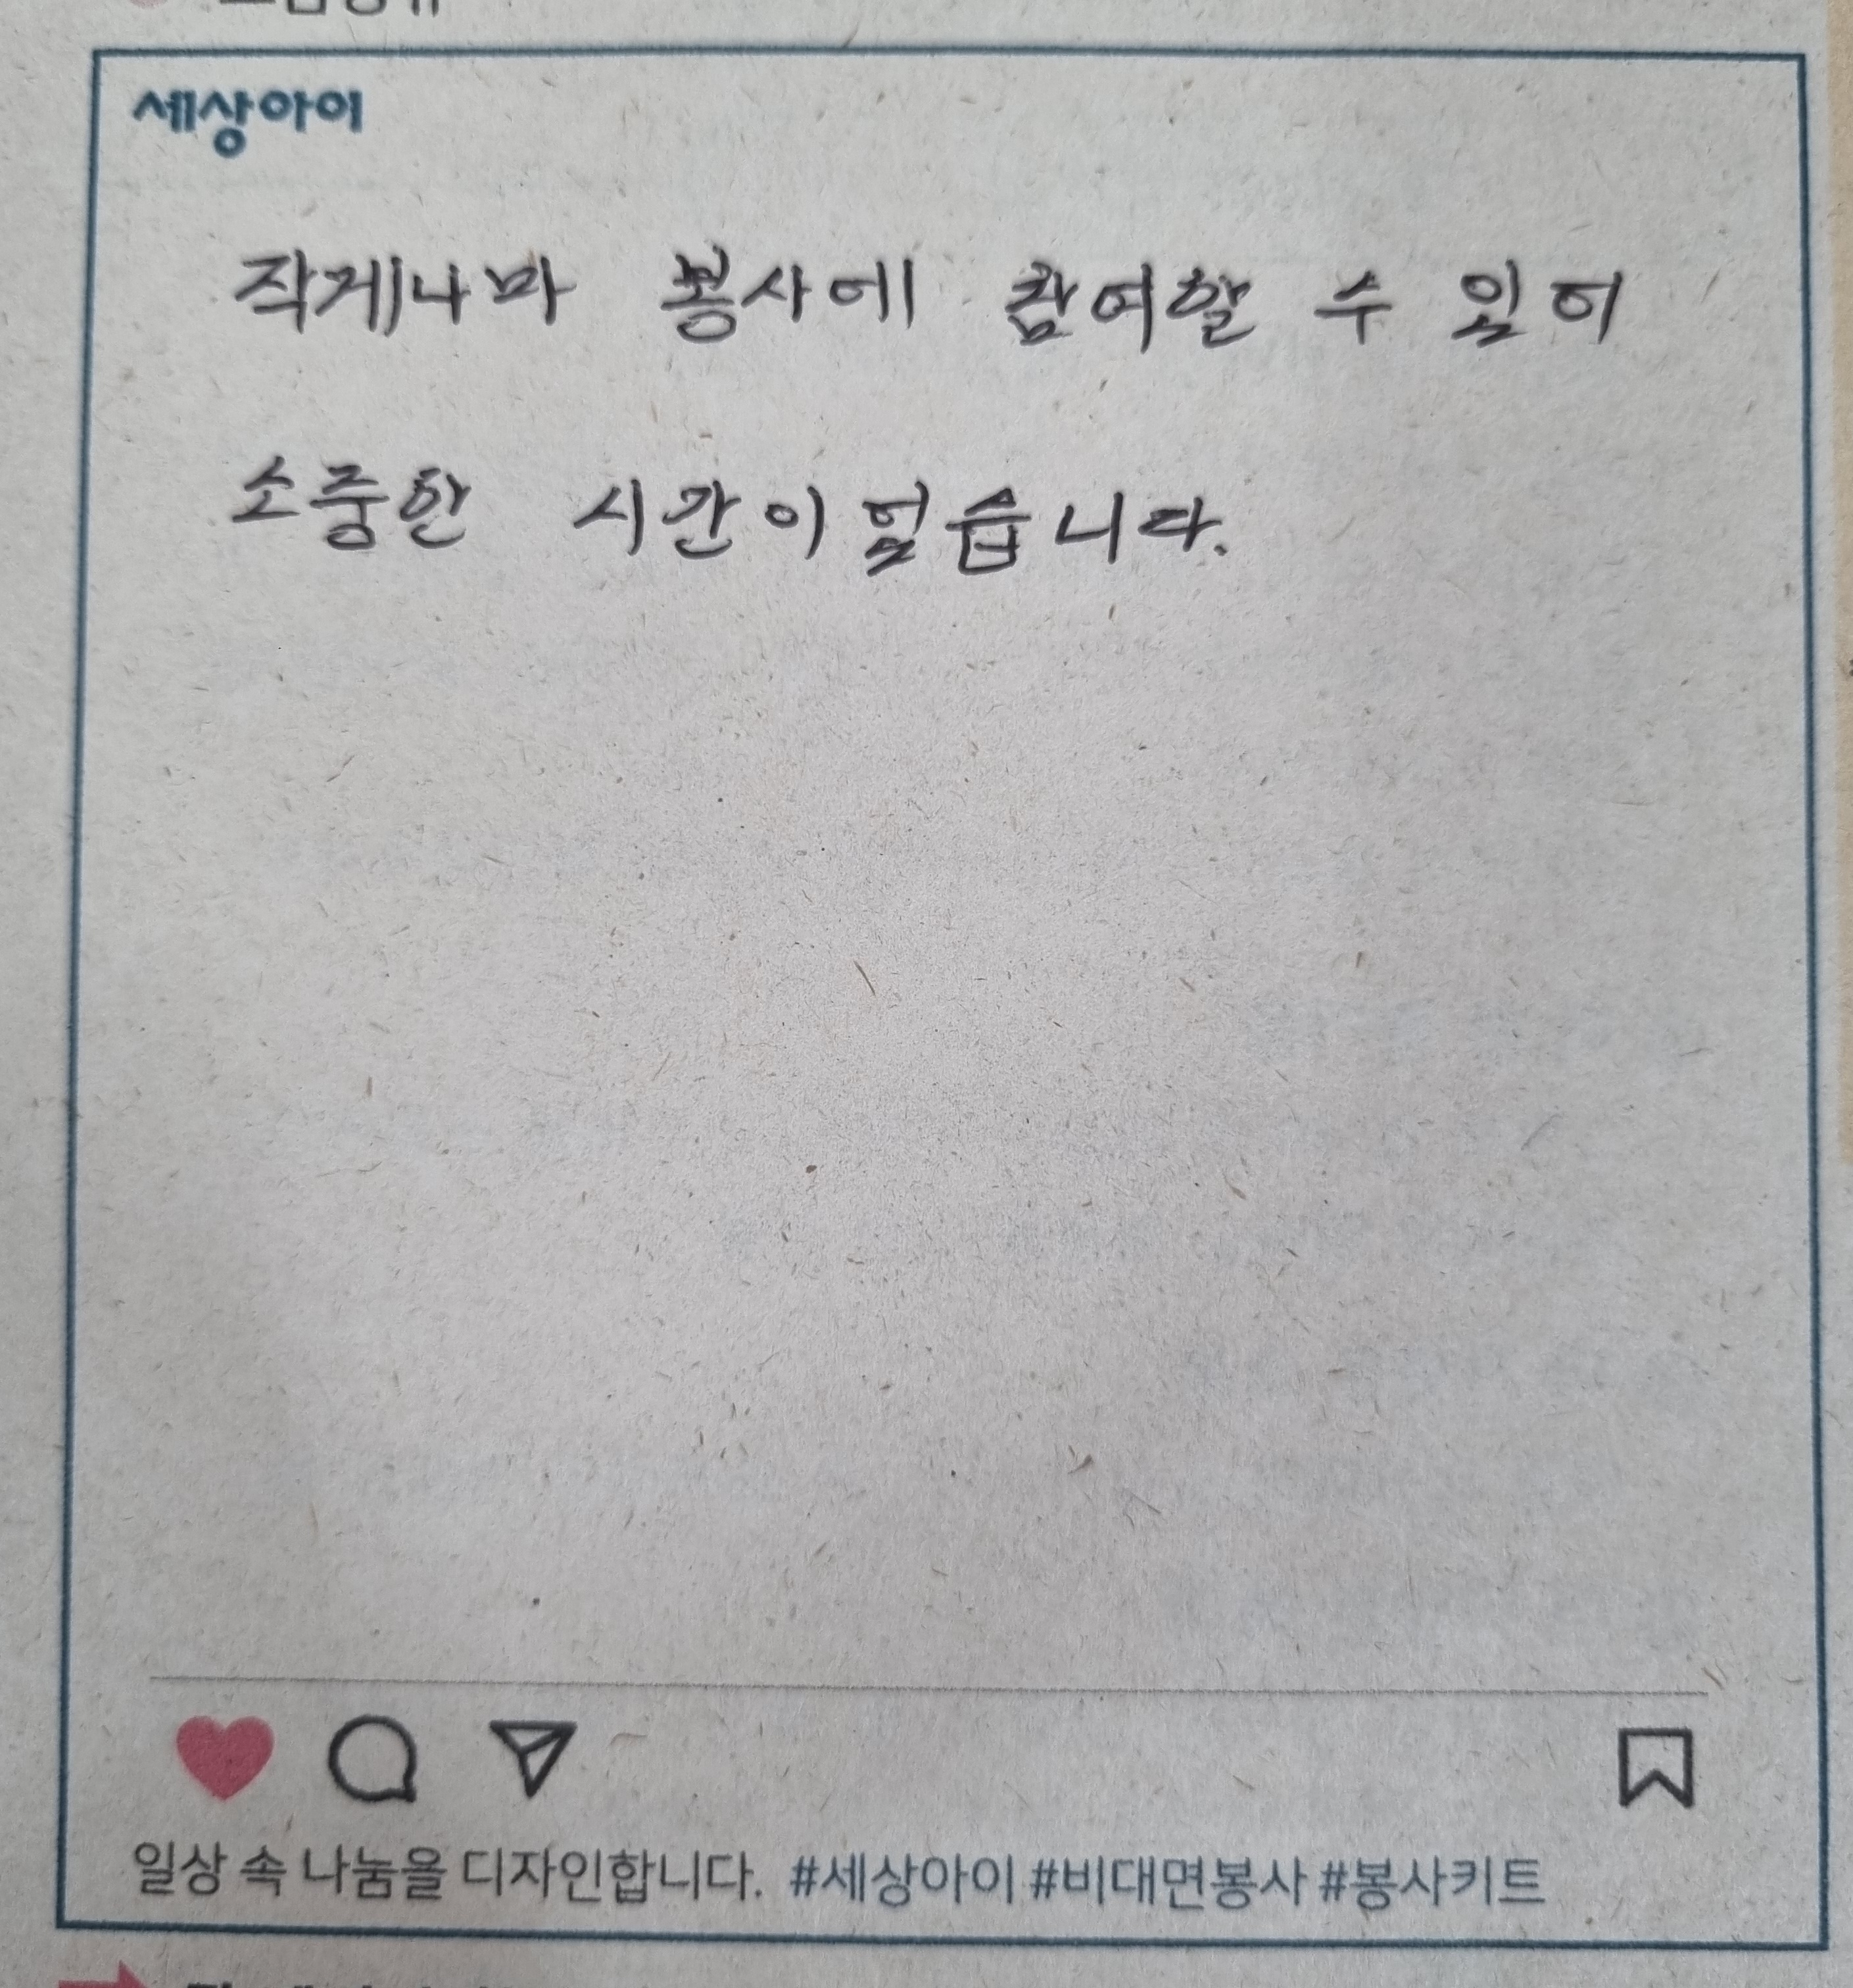 세상아이
작게나마 봉사에 참여할 수 있어
소중한 시간이었습니다.
일상 속 나눔을 디자인합니다. #세상아이 #비대면봉사 #봉사키트